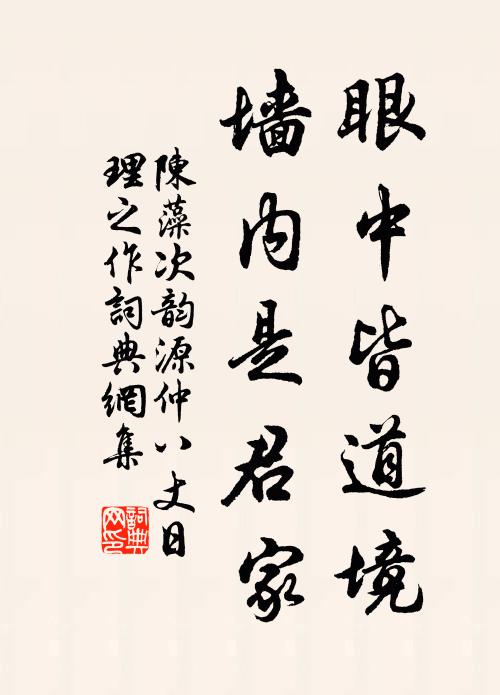 眼中皆道境
墙内是君家
陳藻次韵源仲八丈日
理之作詞典網集
詞典网印